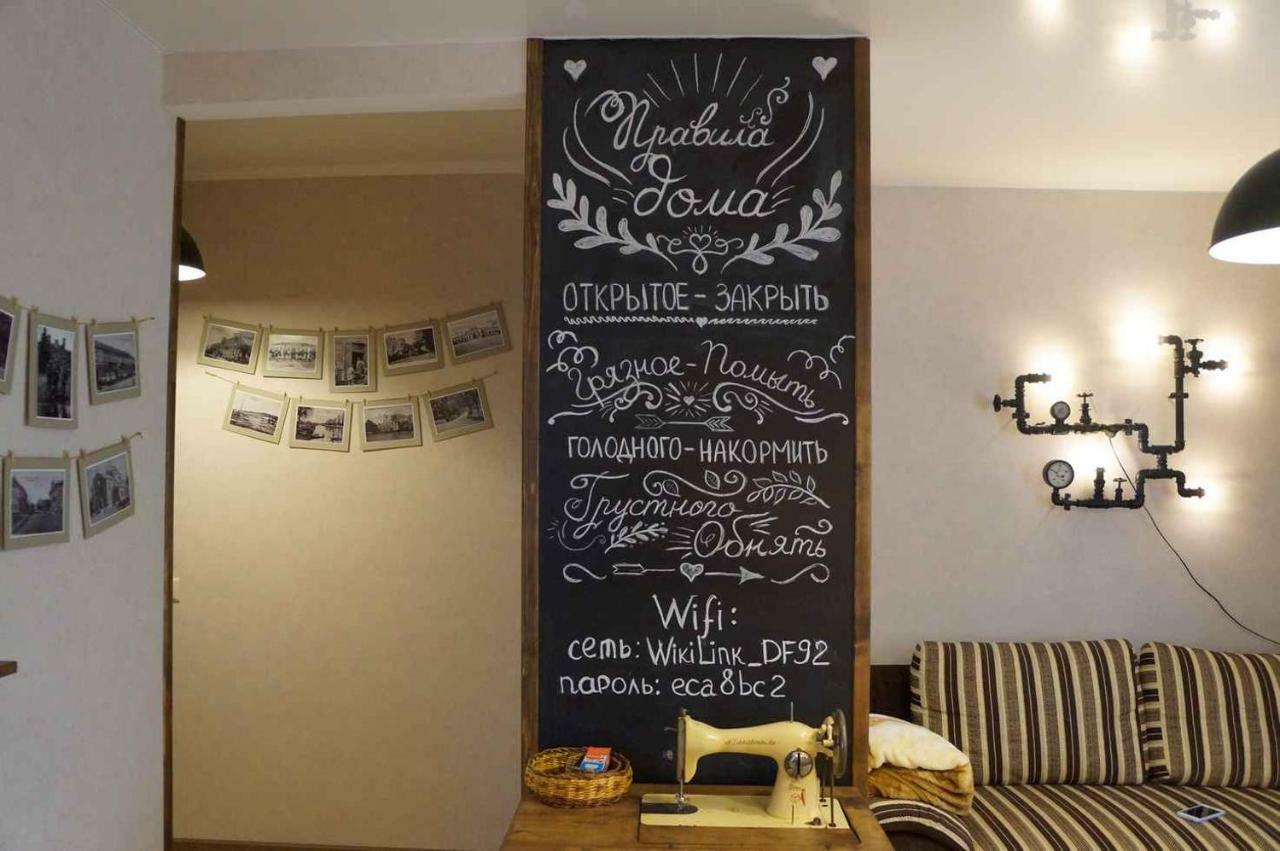 Правила
дома
ОТКРЫТОЕ - ЗАКРЫТЬ
Грязное - Помыть
ГОЛОДНОГО - НАКОРМИТЬ
Грустного
Обнять
Wifi:
сеть: WikiLink_DF92
пароль: eca8bc2